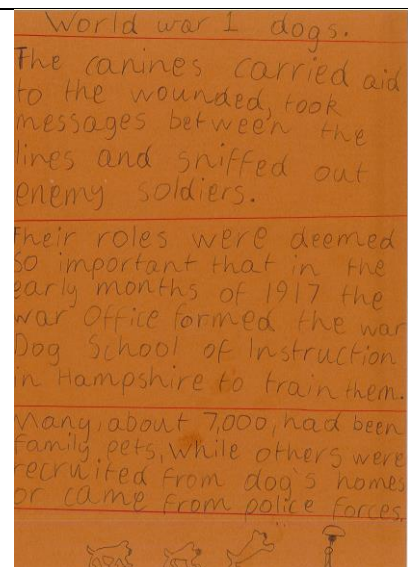 World war 1 dogs.
The canines carried aid
to the wounded, took
messages between the
lines and sniffed out
enemy soldiers.
Their roles were deemed
so important that in the
early months of 1917 the
war Office formed the war
Dog School of Instruction
in Hampshire to train them.
Many, about 7,000, had been
family pets, while others were
recruited from dog's homes
or came from police forces.